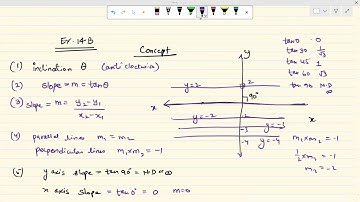 Ex-14-B
Concept
(1) inclination θ (anti clockwise)
(2) slope = m = tanθ
(3) slope = m = y2-y1
x2-x1
(4) parallel lines m1 = m2
perpendicular lines m1×m2 = -1
(5) y axis slope = tan90° = N·D = ∞
x axis slope = tan0° = 0 m=0
y
y=2
2
90°
x
x
y=-2
-2
y=-3
-3
y=-4
-4
tan0 0
tan30 1/√3
tan45 1
tan60 √3
tan90 N.D
∞
m1×m2 = -1
1/2×m2 = -1
m2 = -2